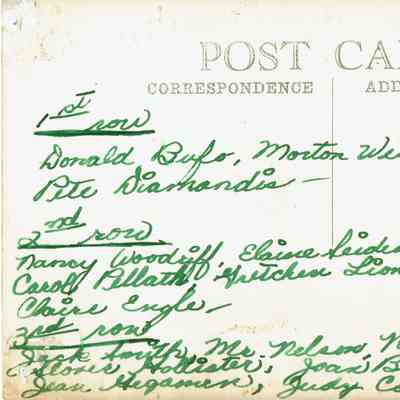 POST CA
CORRESPONDENCE ADD
1st row
Donald Bufo, Morton We
Pete Diamandis —
2nd row
Nancy Woodriff, Elaine Seiden
Carol Pellath, Gretchen Lion
Claire Engle —
3rd row
Jack Smith, Mr. Nelson, N
Hollister, Joan B
Jean Hegamen, Judy Co